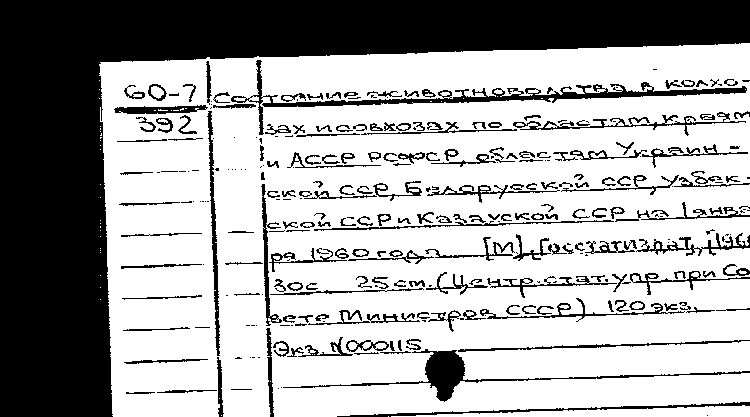 60-7 Состояние животноводства в колхо-
392 зах и совхозах по областям, краям
и АССР РСФСР, областям Украин-
ской ССР, Белорусской ССР, Узбек-
ской ССР и Казахской ССР на 1 янва
ря 1960 года [М], Госстатиздат, [196
30с. 25 см. (Центр. стат. упр. при Со
вете Министров СССР). 120 экз.
Экз. N000115.